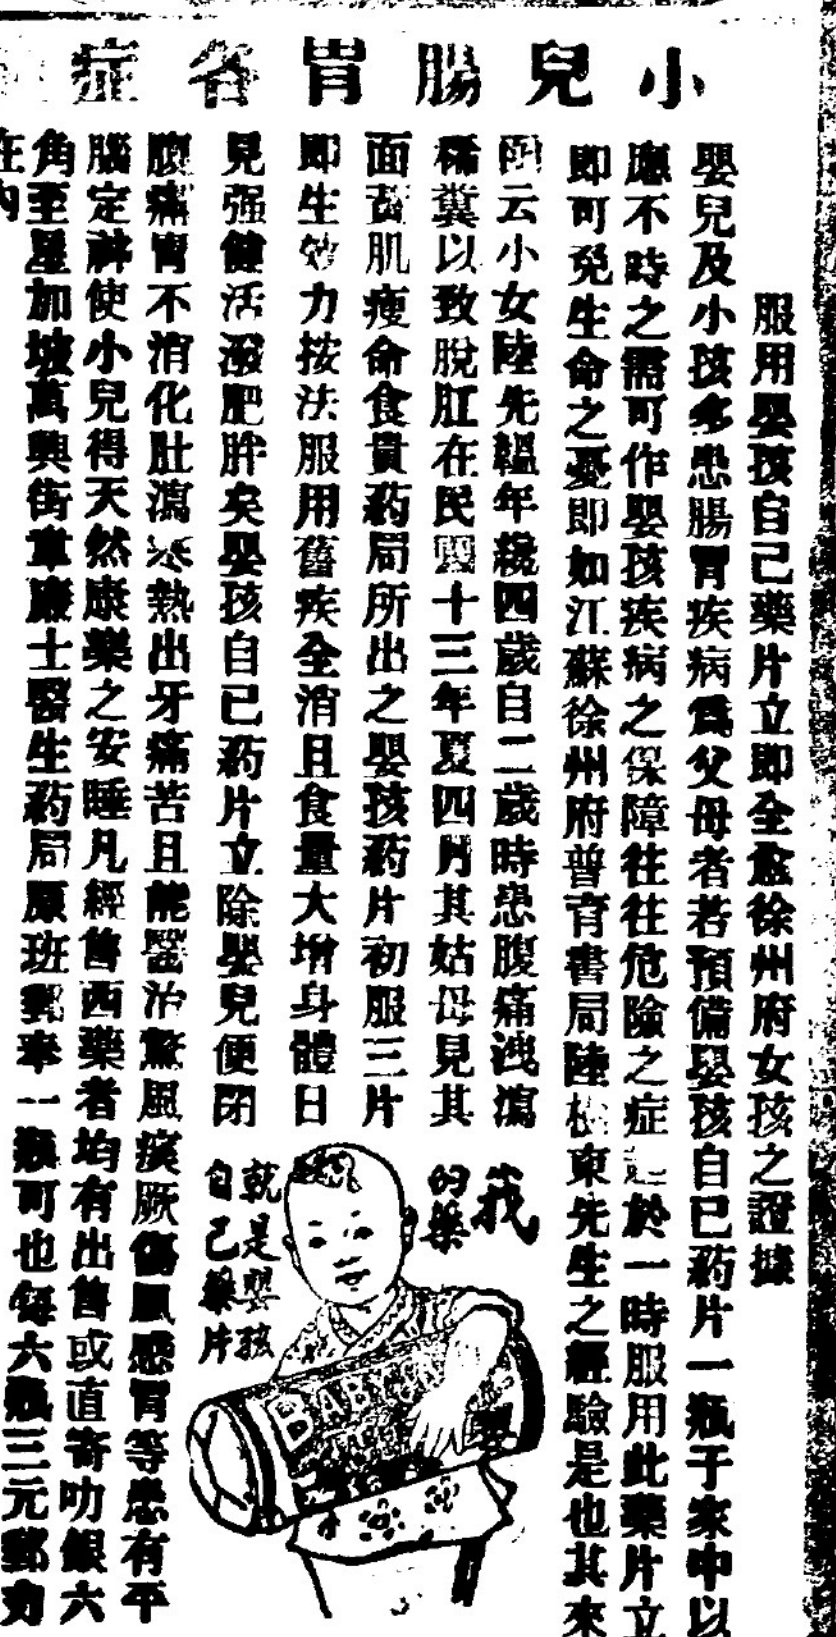 小兒腸胃各症
服用嬰孩自己藥片立即全愈徐州府女孩之證據
嬰兒及小孩多患腸胃疾病爲父母者若預備嬰孩自已葯片一瓶于家中以
應不時之需可作嬰孩疾病之保障往往危險之症起於一時服用此藥片立
即可免生命之憂即如江蘇徐州府普育書局陸東先生之經驗是也其來
函云小女陸先韞年纔四歲自二歲時患腹痛洩瀉
稀糞以致脫肛在民國十三年夏四月其姑母見其
面黃肌瘦命食貴葯局所出之嬰孩葯片初服三片
即生效力按法服用舊疾全消且食量大增身體日
見强健活潑肥胖矣嬰孩自已葯片立除嬰兒便閉
腹痛胃不消化肚瀉寒熱出牙痛苦且能醫治驚風痰厥傷風感冒等患有平
腦定神使小兒得天然康樂之安睡凡經售西藥者均有出售或直寄叻銀六
角至星加坡萬興街韋廉士醫生葯局原班郵奉一瓶可也每六瓶三元郵力
在內
我
的藥
就是嬰孩
自己藥片
BABY